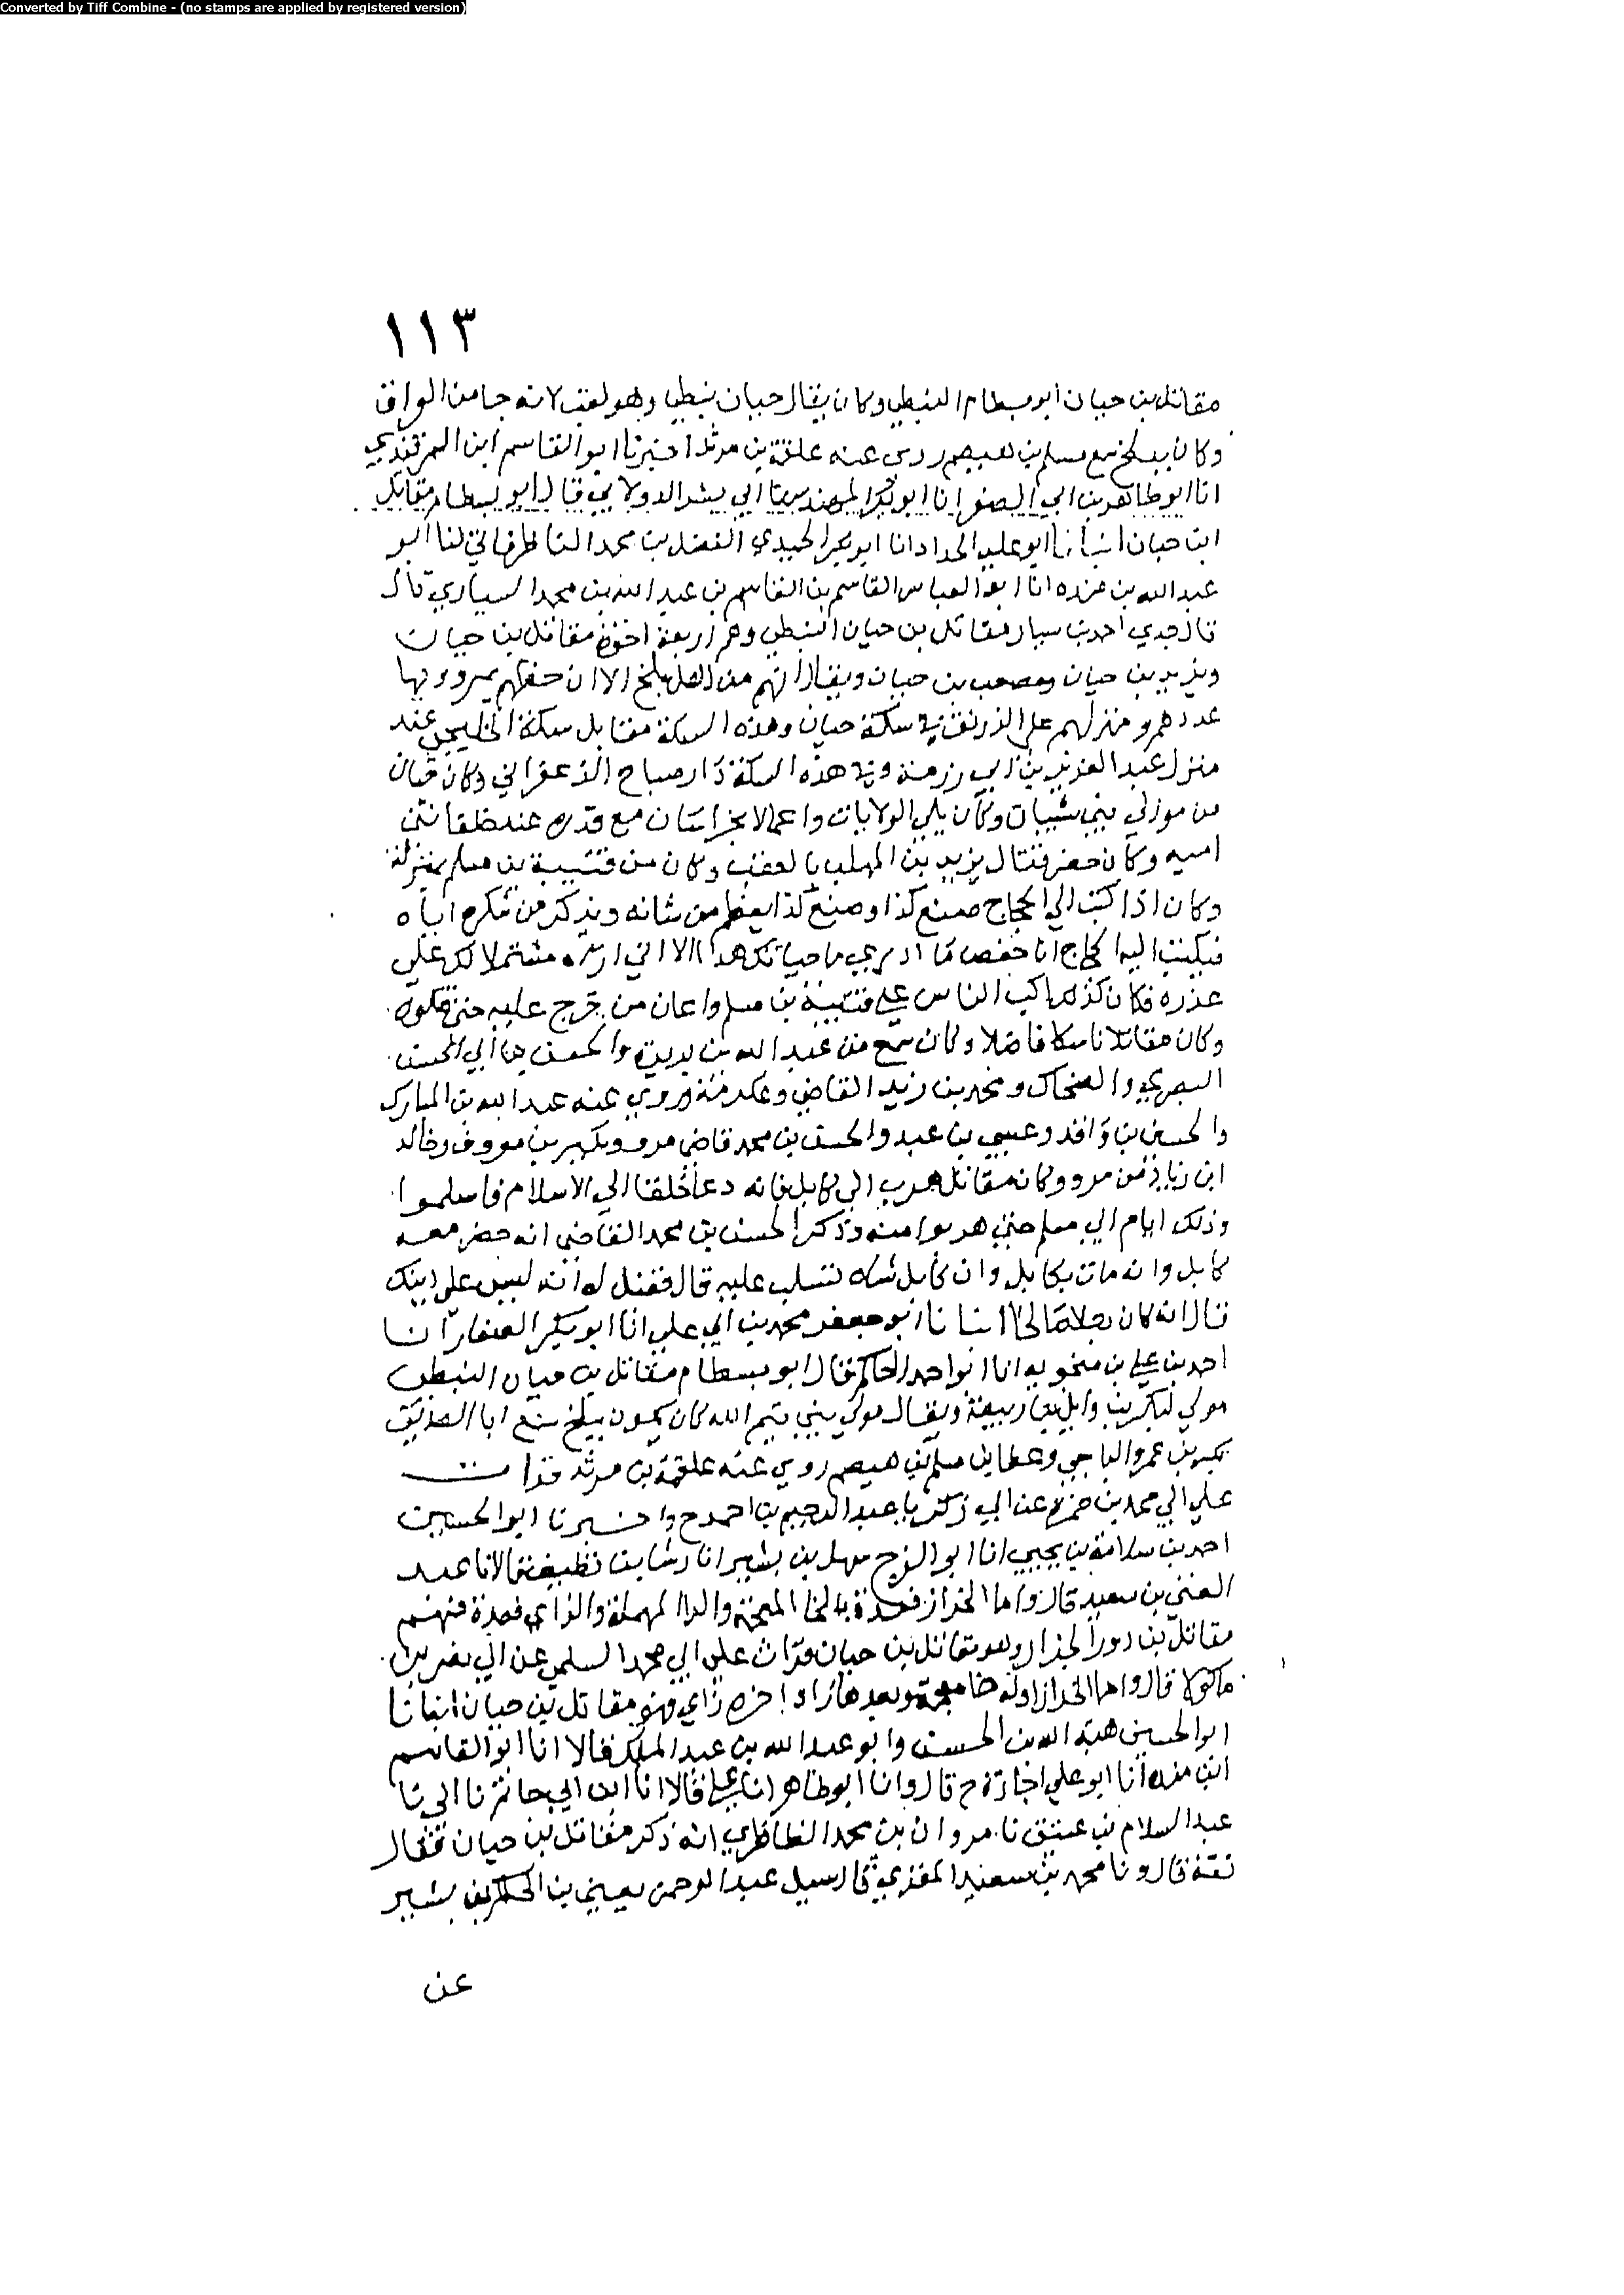 Converted by Tiff Combine - (no stamps are applied by registered version)
١١٣
مقاتل بن حيان أبو بسطام النبطي وكان يقال حيان نبطي وهو لقب لانه جا من العراق
وكان ببلخ سمع مسلم بن هيصم روى عنه علقمة بن مرثد اخبرنا ابو القاسم ابن السمرقندي
انا ابو طاهر بن ابي الصقر انا ابو بكر المهندس نا ابي بشر الدولابي قال ابو بسطام مقاتل
ابن حيان انبأنا ابو علي الحداد انا ابو بكر الفضل بن محمد لنا ابو
عبد الله بن منده انا ابو العباس القاسم بن القاسم بن عبد الله بن محمد السياري قال
قال جدي احمد بن سيار مقاتل بن حيان النبطي وهم اربعة اخوة مقاتل بن حيان
ويزيد بن حيان ومصعب بن حيان ويقال انهم من اهل بلخ الا ان بمرو وبها
عددهم ومنزلهم على الزرنق في سكة حيان وهذه السكة مقابل سكة عند
منزل عبد العزيز بن ابي رزمة وفي هذه السكة دار صباح الزعفراني وكان حيان
من موالي بني شيبان وكان يلي الولايات واعمالا بخراسان مع قدره عند خلفا بني
اميه وكان حضر قتال يزيد بن المهلب بالعقر وكان من قتيبة بن مسلم بمنزلة
وكان اذا كتب الي الحجاج صنع كذا وصنع كذا يعظم من شانه ويذكر من شكره اياه
فيكتب اليه الحجاج انا خفص ما ادري ما حياتك هذا الا اني اراه مشتملا لك علي
عذره فكان كذلك اكب الناس علي قتيبة بن مسلم واعان من خرج عليه حتى قتلوه
وكان مقاتل ناسكا فاضلا وكان سمع من عبد الله بن بريدة والحسن بن ابي الحسن
البصري والضحاك ومحمد بن زيد القاضي وعكرمة وروي عنه عبد الله بن المبارك
والحسين بن واقد وعيسي بن عبيد والحسن بن محمد قاضي مرو وبكير بن معروف وخالد
ابن زياد من مرو وكان مقاتل هرب الى كابل فانه دعا خلقا الي الاسلام فاسلموا
وذلك ايام ابي مسلم حتى هربوا منه وذكر الحسن بن محمد القاضي انه حضر معه
كابل وانه مات بكابل وان كابل شاه تسلب عليه قال فقيل له انه ليس على دينك
قال انه كان رجلا صالحا انبانا ابو جعفر محمد بن ابي علي انا ابو بكر الصفار انا
احمد بن علي بن منجويه انا ابو احمد الحاكم قال ابو بسطام مقاتل بن حيان النبطي
مولي لبكر بن وائل بن ربيعة ويقال مولى بني تيم الله كان يكون ببلخ سمع ابا الصديق
بكر بن عمرو الناجي وعطا بن مسلم بن هيصم روى عنه علقمة بن مرثد قرات
علي ابي محمد بن حمزة عن ابي زكريا عبد الرحيم بن احمد ح واخبرنا ابو الحسين
احمد بن سلامة بن يحيى انا ابو الفرج سهل بن بشر انا رشا بن نظيف قالا نا عبد
الغني بن سعيد قال واما الخراز فعدة بالخا المعجمة والرا المهملة والزاي فعدة منهم
مقاتل بن دوال الخراز وهو مقاتل بن حيان قرات علي ابي محمد السلمي عن ابي نصر بن
ماكولا قال واما الخراز اوله خا معجمة وبعدها را واخره زاي فهو مقاتل بن حيان انبانا
ابو الحسين هبة الله بن الحسن وابو عبد الله بن عبد الملك قالا انا ابو القاسم
ابن منده انا ابو علي اجازة ح قال وانا ابو طاهر انا علي قالا انا ابن ابي حاتم نا ابي نا
عبد السلام بن عتيق نا مروان بن محمد الطاطري انه ذكر مقاتل بن حيان فقال
ثقة قال ونا محمد بن سعيد المقري قال سيل عبد الرحمن يعني بن الحكم بن بشير
عن